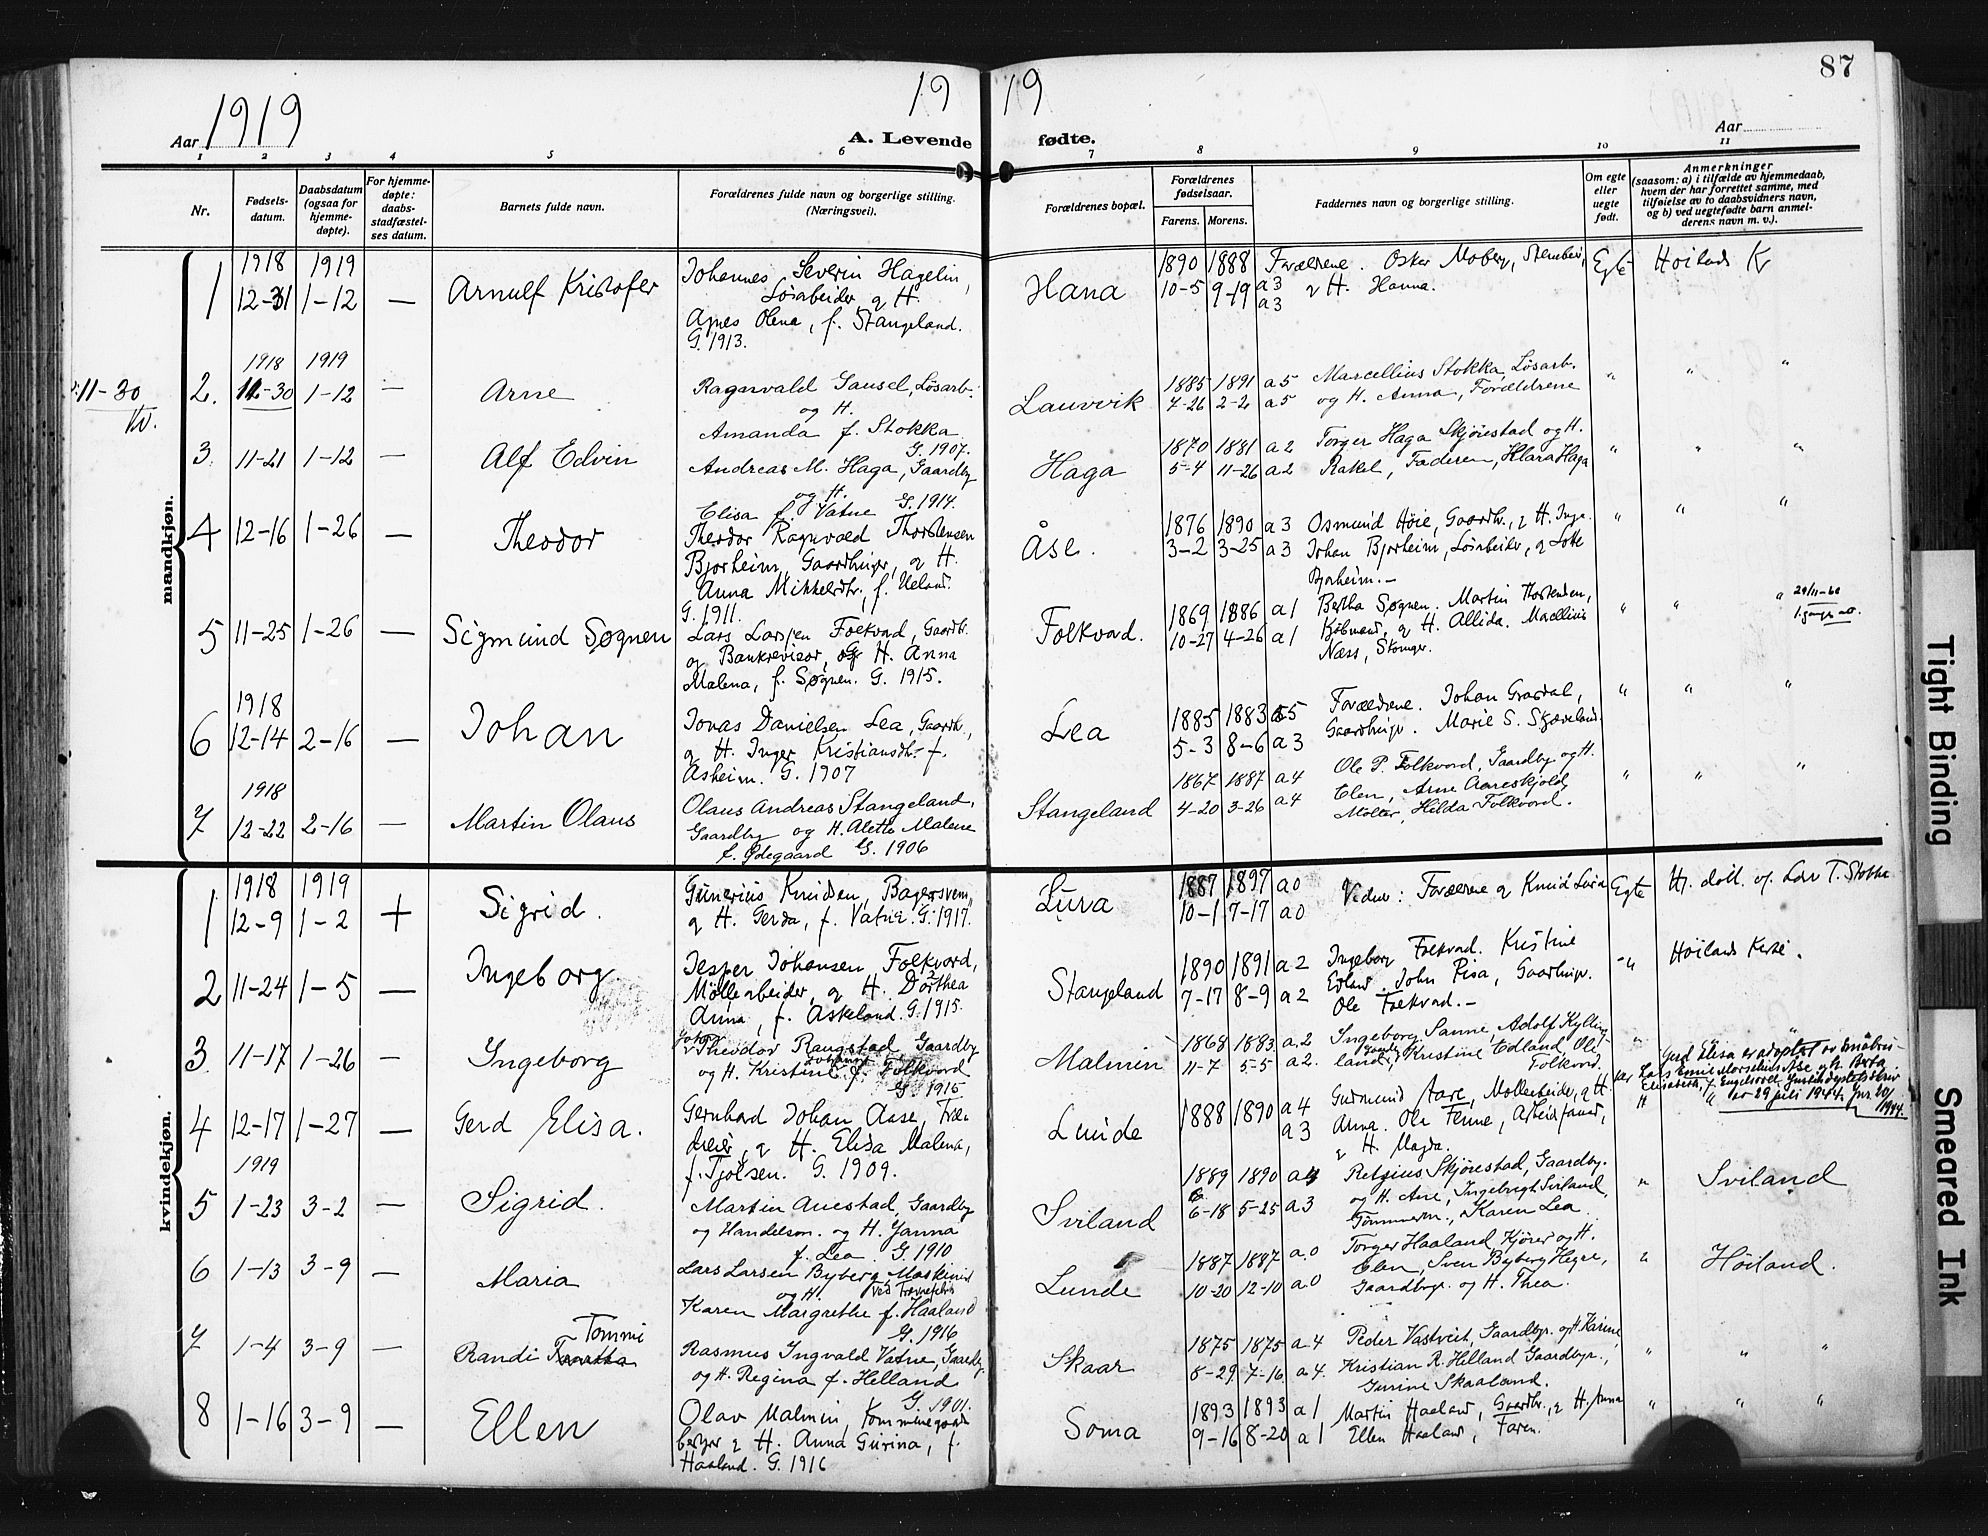 87
1919
19
19
Aar
A. Levende
fødte.
Aar
1 2 3 4 5 6 7 8 9 10 11
Nr.
Fødsels-
datum.
Daabsdatum
(ogsaa for
hjemme-
døpte).
For hjemme-
døpte:
daabs-
stadfæstel-
ses datum.
Barnets fulde navn.
Forældrenes fulde navn og borgerlige stilling.
(Næringsvei).
Forældrenes bopæl.
Forældrenes
fødselsaar.
Farens. Morens.
Faddernes navn og borgerlige stilling.
Om egte
eller
uegte
født.
Anmerkninger
(saasom: a) i tilfælde av hjemmedaab,
hvem der har forrettet samme, med
tilføielse av to daabsvidners navn,
og b) ved uegtefødte barn anmel-
derens navn m. v.).
mandkjøn.
1918 1919
1 12-31 1-12 — Arnulf Kristofer
Johannes Severin Hagelin,
Løsarbeider, g H.
Agnes Olena, f. Stangeland.
G. 1913.
Hana
1890 1888
10-5 9-19 a3
a3
Forældrene. Oskar Moberg,
g H. Hanna.
Egte Høilands K
11-30
1918 1919
2. 12-30 1-12 — Arne
Ragnvald Gausel, Løsarb.
og H.
Amanda f. Stokka
G. 1907.
Lauvvik
1885 1891 a5
4-26 2-2 a5
Marcellius Stokka, Løsarb.
og H. Anna, Forældrene
" " "
3. 11-21 1-12 — Alf Edvin
Andreas M. Haga, Gaardby
og H.
Elisa f. Vatne G. 1914.
Haga
1870 1881 a2
5-4 11-26 a2
Torger Haga Skjørestad og H.
Rakel, Faderen, Klara Haga
" " "
4 12-16 1-26 — Theodor
Theodor Ragnvald Thorstensen
Bjorheim, Gaardbruger, g H.
Anna Mikkelsdtr., f. Ueland.
G. 1911.
Åse.
1876 1890 a3
3-2 3-25 a3
Osmund Høie, Gaardbr., g H. Inga.
Johan Bjorheim, Løsarbeider, g Lotte
Bjorheim. —
" " "
5 11-25 1-26 — Sigmund Søgnen
Lars Larsen Folkvord, Gaardb.
og Bankrevisor, og H. Anna
Malena, f. Søgnen. G. 1915.
Folkvord.
1869 1886 a1
10-27 4-26 a1
Bertha Søgnen. Martin Thorstensen,
Kjøbmand, g H. Allida.
Næss, Stavanger.
" " "
29/11-60
1918
6 12-14 2-16 — Johan
Jonas Danielsen Lea, Gaardb.,
g H. Inger Kristiansdtr. f.
Asheim. G. 1907
Lea
1885 1883 a5
5-3 8-6 a3
Forældrene. Johan Gravdal,
Gaardbruger. Marie S. Skjæveland.
" " "
1918
7 12-22 2-16 — Martin Olaus
Olaus Andreas Stangeland,
Gaardby og H. Alette Malene
f. Ødegaard G. 1906
Stangeland
1867 1887 a4
4-20 3-26 a4
Ole P. Folkvord, Gaardby og H.
Elen, Arne Aareskjold,
Møller, Hilda Folkvord.
" " "
kvindekjøn.
1918 1919
1 12-9 1-2 + Sigrid.
Gunerius Knudsen, Bagersvend,
g H. Gerda, f. Vatne. G. 1917.
Lura
1887 1897 a0
10-1 7-17 a0
Vidner: Forældrene g Knud Lura
Egte Hj. døbt. af. Lars T. Stokka
2 11-24 1-5 — Ingeborg.
Jesper Johansen Folkvord,
Møllearbeider, g H. Dorthea
Anna, f. Askeland. G. 1915.
Stangeland
1890 1891 a2
7-17 8-9 a2
Ingeborg Folkvord. Kristine
Edland. John Risa, Gaardbruger.
Ole Folkvord. —
" Høilands Kirke.
3. 11-17 1-26 — Ingeborg
Theodor Raugstad Gaardby
og H. Kristine f. Folkvord
G. 1915
Malmin
1868 1883 a.2
11-7 5-5 a2.
Ingeborg Sanne, Adolf Kylling-
land, Kristine Edland, Ole
Folkvord.
"
Gerd Elisa er adoptert av
Lars Emil Marselius Åse og h. Berta
Elisabeth, f. Engelsvoll.
av 29 juli 1944. Jnr. 20/1944.
4 12-17 1-27 — Gerd Elisa.
Gernhard Johan Aase, Træ-
dreier, g H. Elisa Malena,
f. Tjølsen. G. 1909.
Lunde
1888 1890 a4
a3
Gudmund Aase, Møllearbeider, g H.
Anna. Ole Finne,
g H. Magda.
"
1919
5 1-23 3-2 — Sigrid.
Martin Auestad, Gaardby
og Handelsm. og H. Janna
f. Lea G. 1910
Sviland
1889 1890 a4
6-18 5-25 a3
Retsius Skjørestad, Gaardby.
og H. Ane, Ingebrigt Sviland,
Tømmerm., Karen Lea.
" Sviland
6 1-13 3-9 — Maria
Lars Larsen Byberg, Maskinist
og H. ved Trævarefabrik
Karen Margrethe f. Haaland
G. 1916
Lunde
1887 1887 a.0
10-20 12-10 a0
Torger Haaland, Kjører og H.
Elen, Sven Byberg Hegre,
Gaardbyr. og H. Thea.
" Høiland.
7 1-4 3-9 — Randi Tommi
Rasmus Ingvald Vatne, Gaardby.
og H. Regina f. Helland
G. 1901.
Skaar
1875 1875 a.4
8-29 7-16 a.4.
Peder Vastveit, Gaardbyr. og H. Karine,
Kristian R. Helland Gaardbyr.,
Gurine Skaaland.
" " "
8 1-16 3-9 — Ellen
Olav Malmin, Kommunegaard
bestyrer g H. Anna Gurina, f.
Haaland. G. 1916
Soma
1893 1893 a1
9-16 8-20 a1
Martin Haaland, Gaardbr., g H. Anna
Ellen Haaland, Faren.
" " "
Tight Binding
Smeared Ink